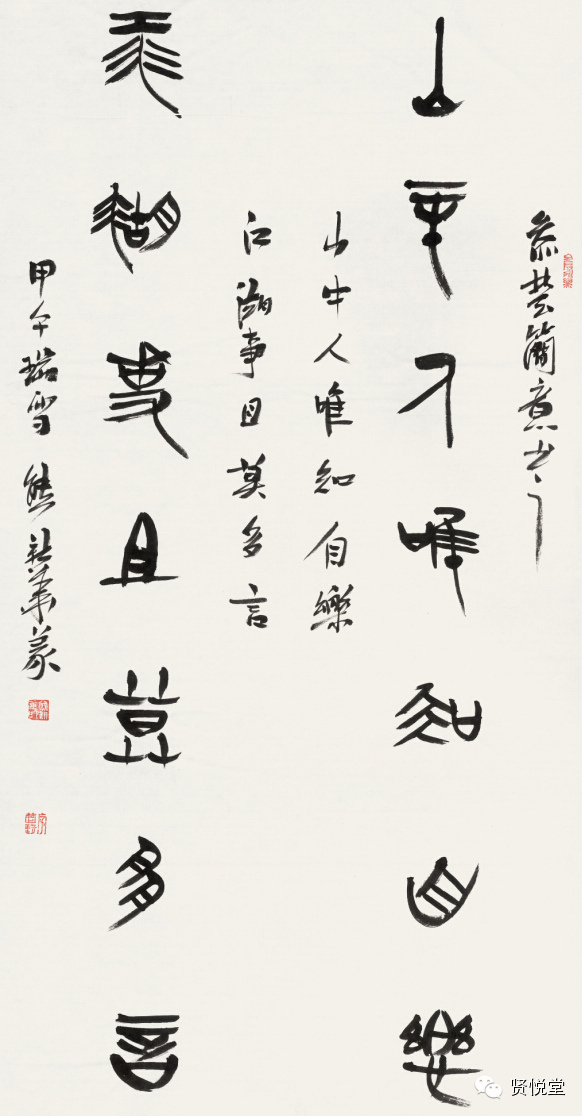 楚簡意书之
山中人唯知自樂
山中人唯知自樂
江湖事且莫多言
江湖事且莫多言
甲午瑞雪 熊華篆
贤悦堂